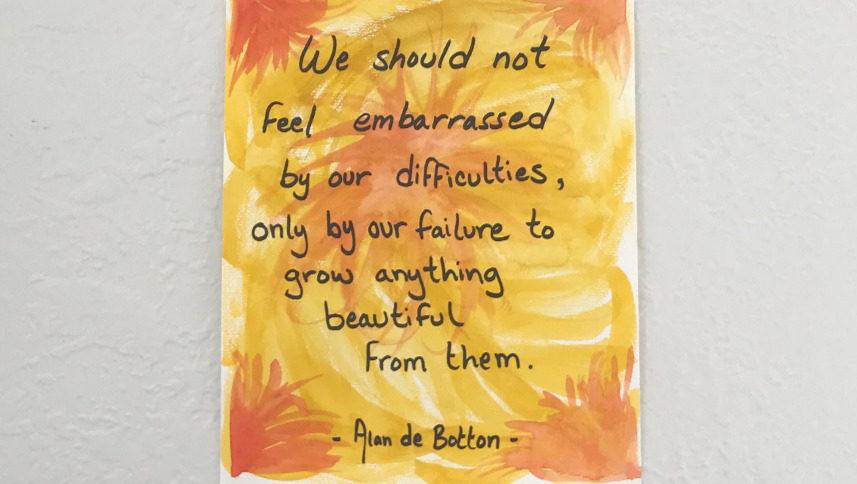 We should not
feel embarrassed
by our difficulties,
only by our failure to
grow anything
beautiful
from them.
- Alan de Botton -